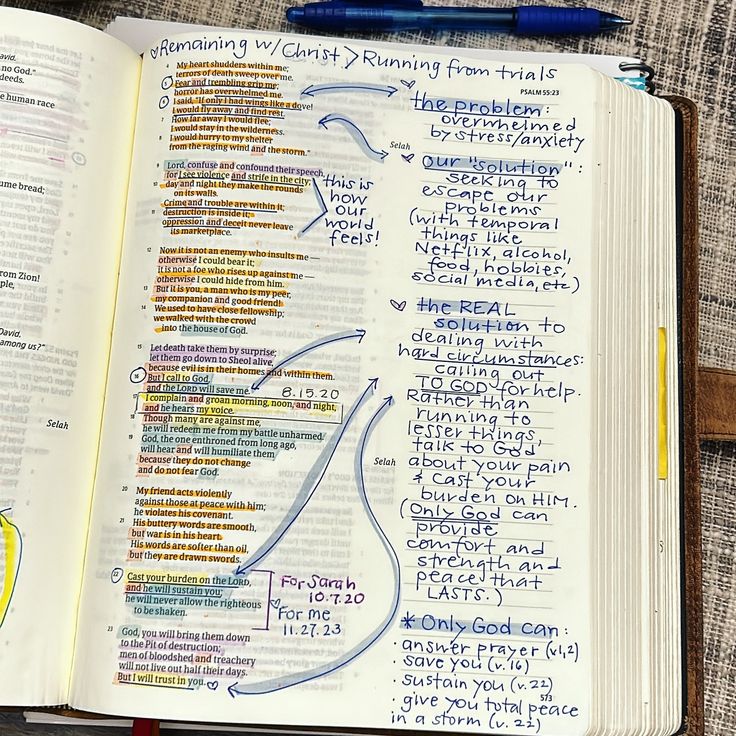 Remaining w/ Christ > Running from trials
PSALM 55:23
My heart shudders within me;
terrors of death sweep over me.
5 Fear and trembling grip me;
horror has overwhelmed me.
6 I said, "If only I had wings like a dove!
I would fly away and find rest.
7 How far away I would flee;
I would stay in the wilderness. Selah
8 I would hurry to my shelter
from the raging wind and the storm."
9 Lord, confuse and confound their speech,
for I see violence and strife in the city;
10 day and night they make the rounds
on its walls.
Crime and trouble are within it;
11 destruction is inside it;
oppression and deceit never leave
its marketplace.
12 Now it is not an enemy who insults me —
otherwise I could bear it;
it is not a foe who rises up against me —
otherwise I could hide from him.
13 But it is you, a man who is my peer,
my companion and good friend!
14 We used to have close fellowship;
we walked with the crowd
into the house of God.
15 Let death take them by surprise;
let them go down to Sheol alive,
because evil is in their homes and within them.
16 But I call to God,
and the LORD will save me. 8.15.20
17 I complain and groan morning, noon, and night,
and he hears my voice.
18 Though many are against me,
he will redeem me from my battle unharmed.
19 God, the one enthroned from long ago,
will hear and will humiliate them Selah
because they do not change
and do not fear God.
20 My friend acts violently
against those at peace with him;
he violates his covenant.
21 His buttery words are smooth,
but war is in his heart.
His words are softer than oil,
but they are drawn swords.
22 Cast your burden on the LORD,
and he will sustain you;
he will never allow the righteous
to be shaken.
23 God, you will bring them down
to the Pit of destruction;
men of bloodshed and treachery
will not live out half their days.
But I will trust in you.
this is
how
our
world
feels!
For Sarah
10.7.20
For me
11.27.23
the problem:
overwhelmed
by stress/anxiety
our "solution":
seeking to
escape our
problems
(with temporal
things like
Netflix, alcohol,
food, hobbies,
social media, etc)
the REAL
solution to
dealing with
hard circumstances:
calling out
TO GOD for help.
Rather than
running to
lesser things,
talk to God
about your pain
& cast your
burden on HIM.
(Only God can
provide
comfort and
strength and
peace that
LASTS.)
* Only God can:
· answer prayer (v.1,2)
· save you (v.16)
· sustain you (v.22)
573
· give you total peace
in a storm (v.22)
David,
no God."
deeds.
e human race
sume bread;
from Zion!
ple,
David,
among us?"
Selah